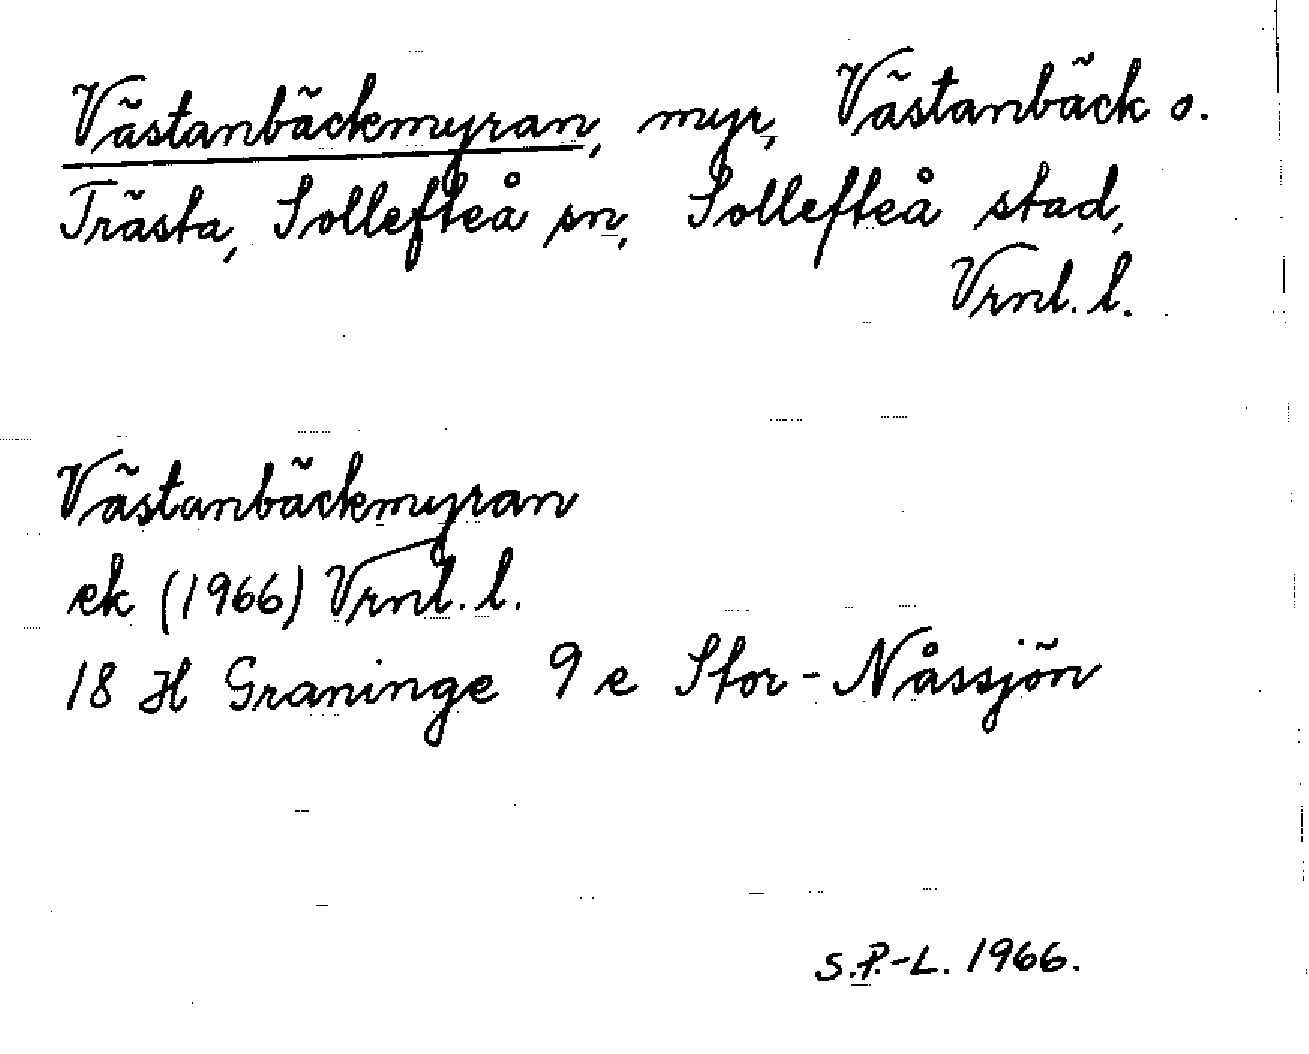 Västanbäckmyran, myr, Västanbäck o.
Trästa, Sollefteå sn, Sollefteå stad,
Vrnl. l.
Västanbäckmyran
ek (1966) Vrnl. l.
18 H Graninge 9 e Stor-Nåssjön
S.P.-L. 1966.